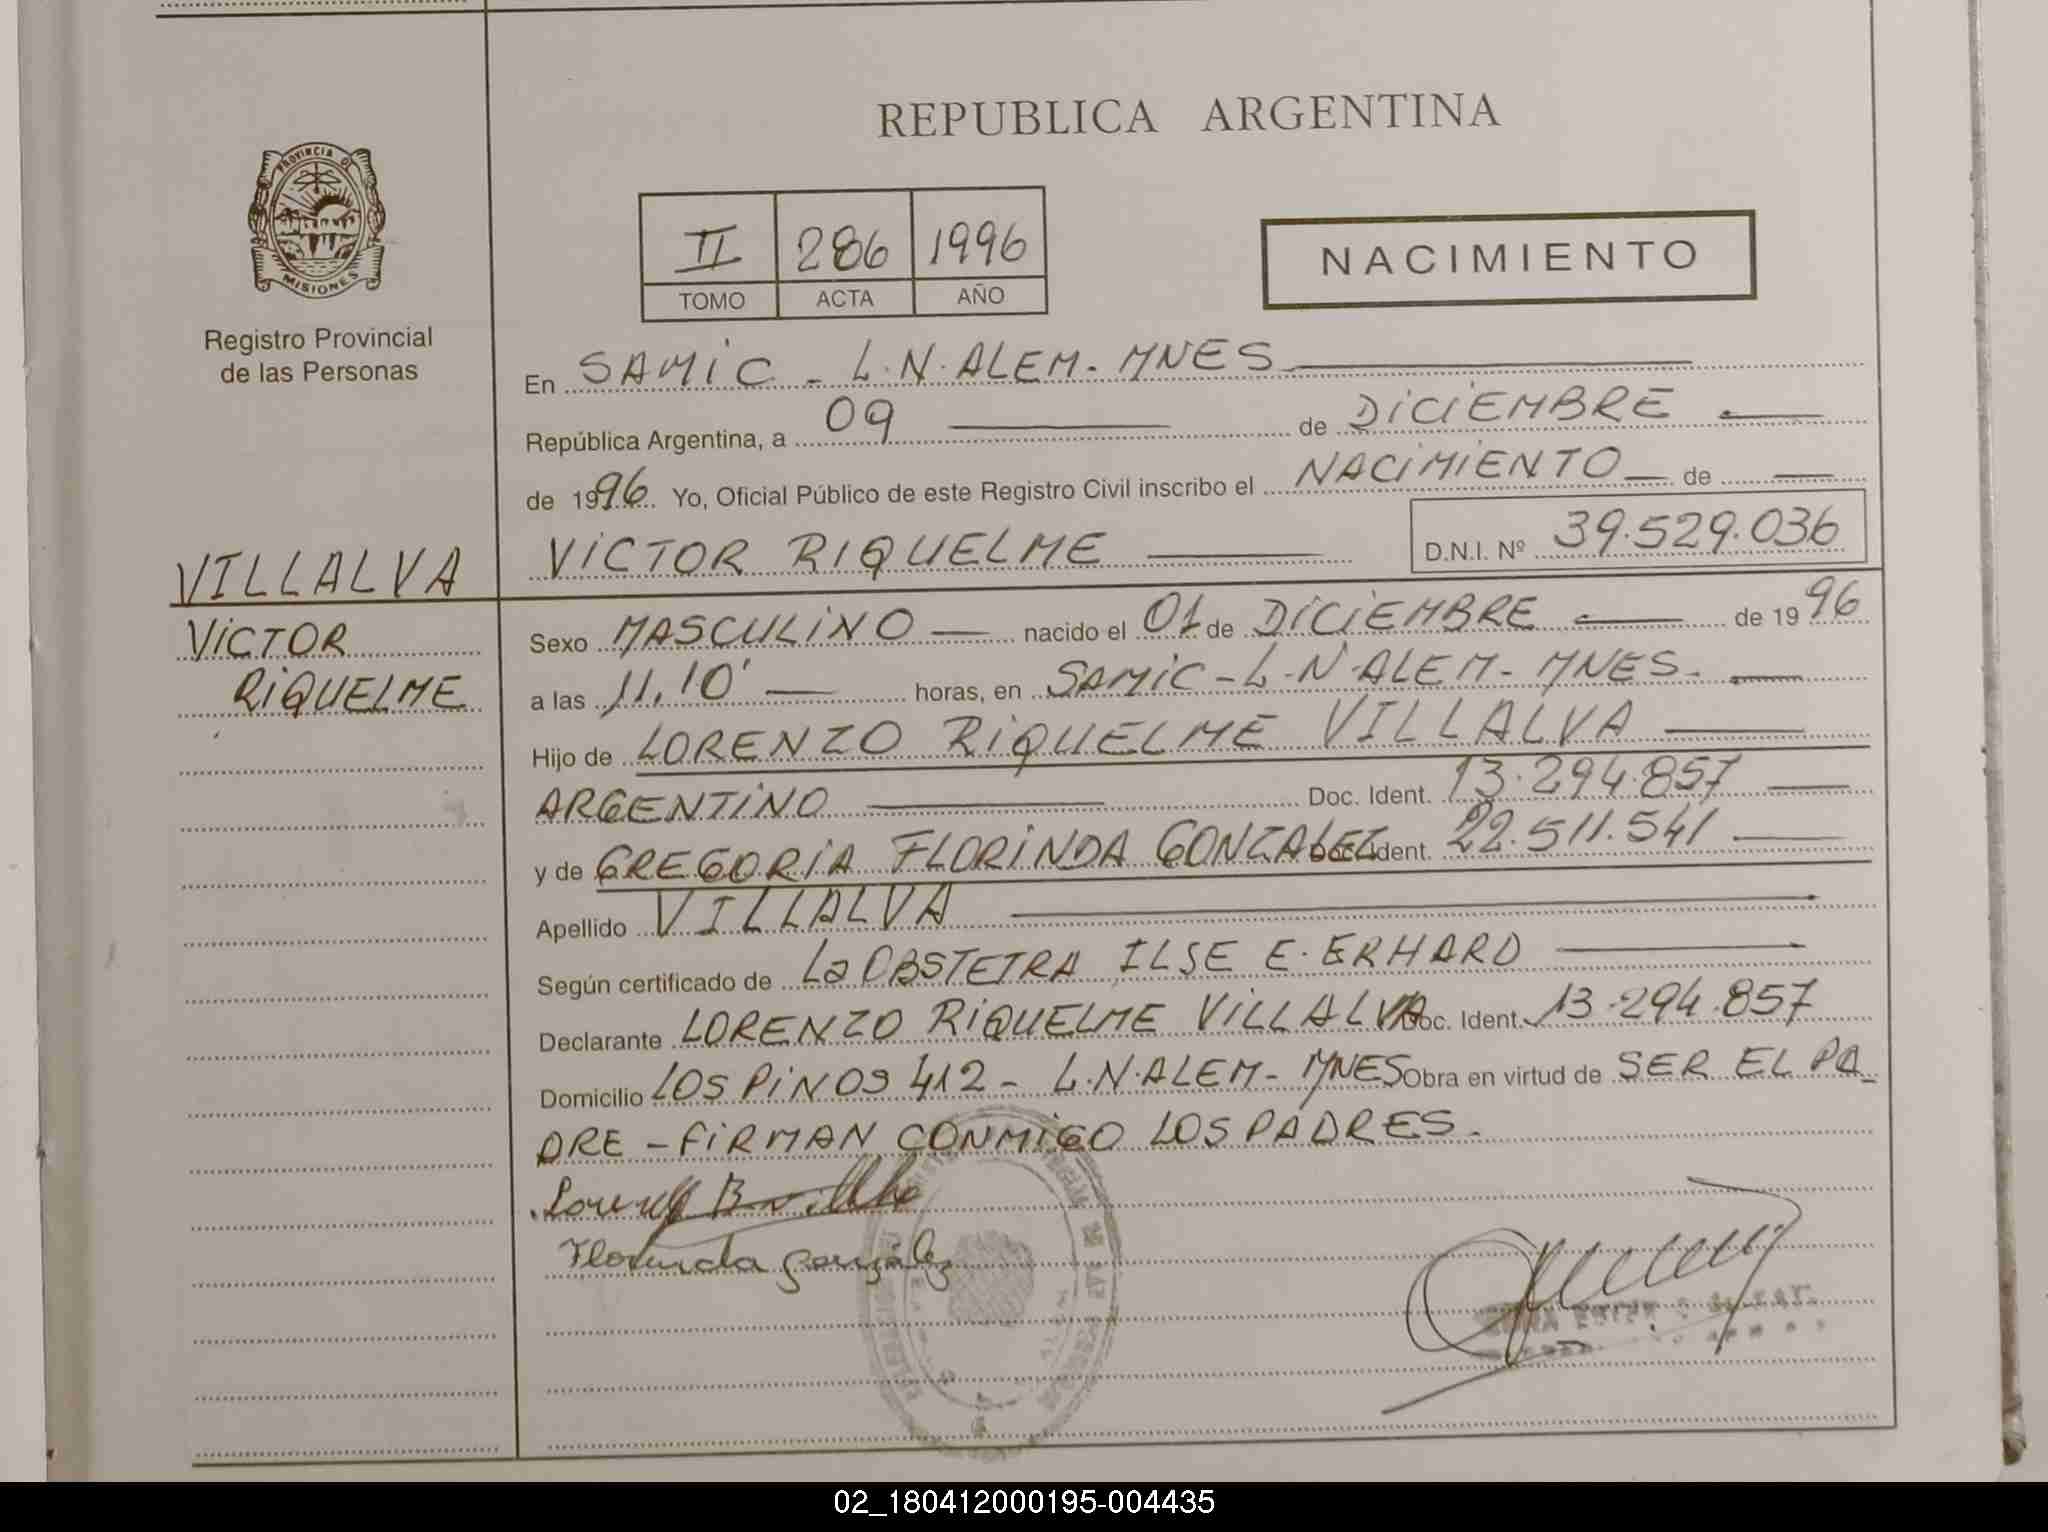 REPUBLICA ARGENTINA
PROVINCIA D
MISIONES
Registro Provincial
de las Personas
II 286 1996
TOMO ACTA AÑO
NACIMIENTO
En SAMIC - L.N. ALEM - MNES
República Argentina, a 09 de DICIEMBRE
de 1996. Yo, Oficial Público de este Registro Civil inscribo el NACIMIENTO de
VICTOR RIQUELME D.N.I. Nº 39.529.036
VILLALVA
VICTOR
RIQUELME
Sexo MASCULINO nacido el 01 de DICIEMBRE de 1996
a las 11,10' horas, en SAMIC - L.N. ALEM - MNES.
Hijo de LORENZO RIQUELME VILLALVA
ARGENTINO Doc. Ident. 13.294.857
y de GREGORIA FLORINDA GONZALEZ Doc. Ident. 22.511.541
Apellido VILLALVA
Según certificado de La OBSTETRA ILSE E. ERHARD
Declarante LORENZO RIQUELME VILLALVA Doc. Ident. 13.294.857
Domicilio LOS PINOS 412 - L.N. ALEM - MNES Obra en virtud de SER EL PA_
DRE - FIRMAN CONMIGO LOS PADRES.
Florinda González
02_180412000195-004435